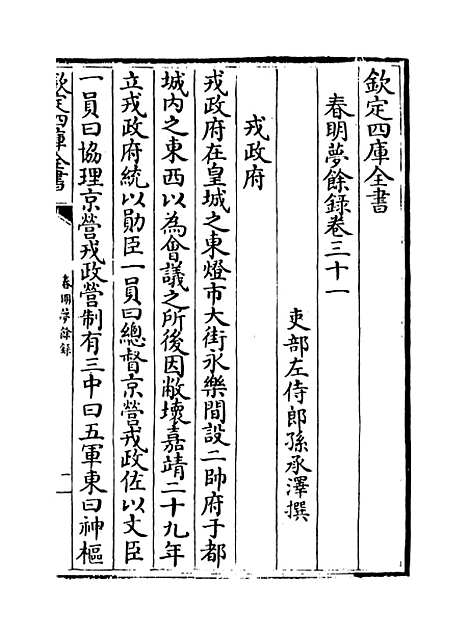 欽定四庫全書
春明夢餘錄卷三十一
吏部左侍郎孫承澤撰
戎政府
戎政府在皇城之東燈市大街永樂間設二帥府于都
城内之東西以為會議之所後因敝壞嘉靖二十九年
立戎政府統以勛臣一員曰總督京營戎政佐以文臣
一員曰協理京營戎政營制有三中曰五軍東曰神樞
欽定四庫全書
春明夢餘錄
一